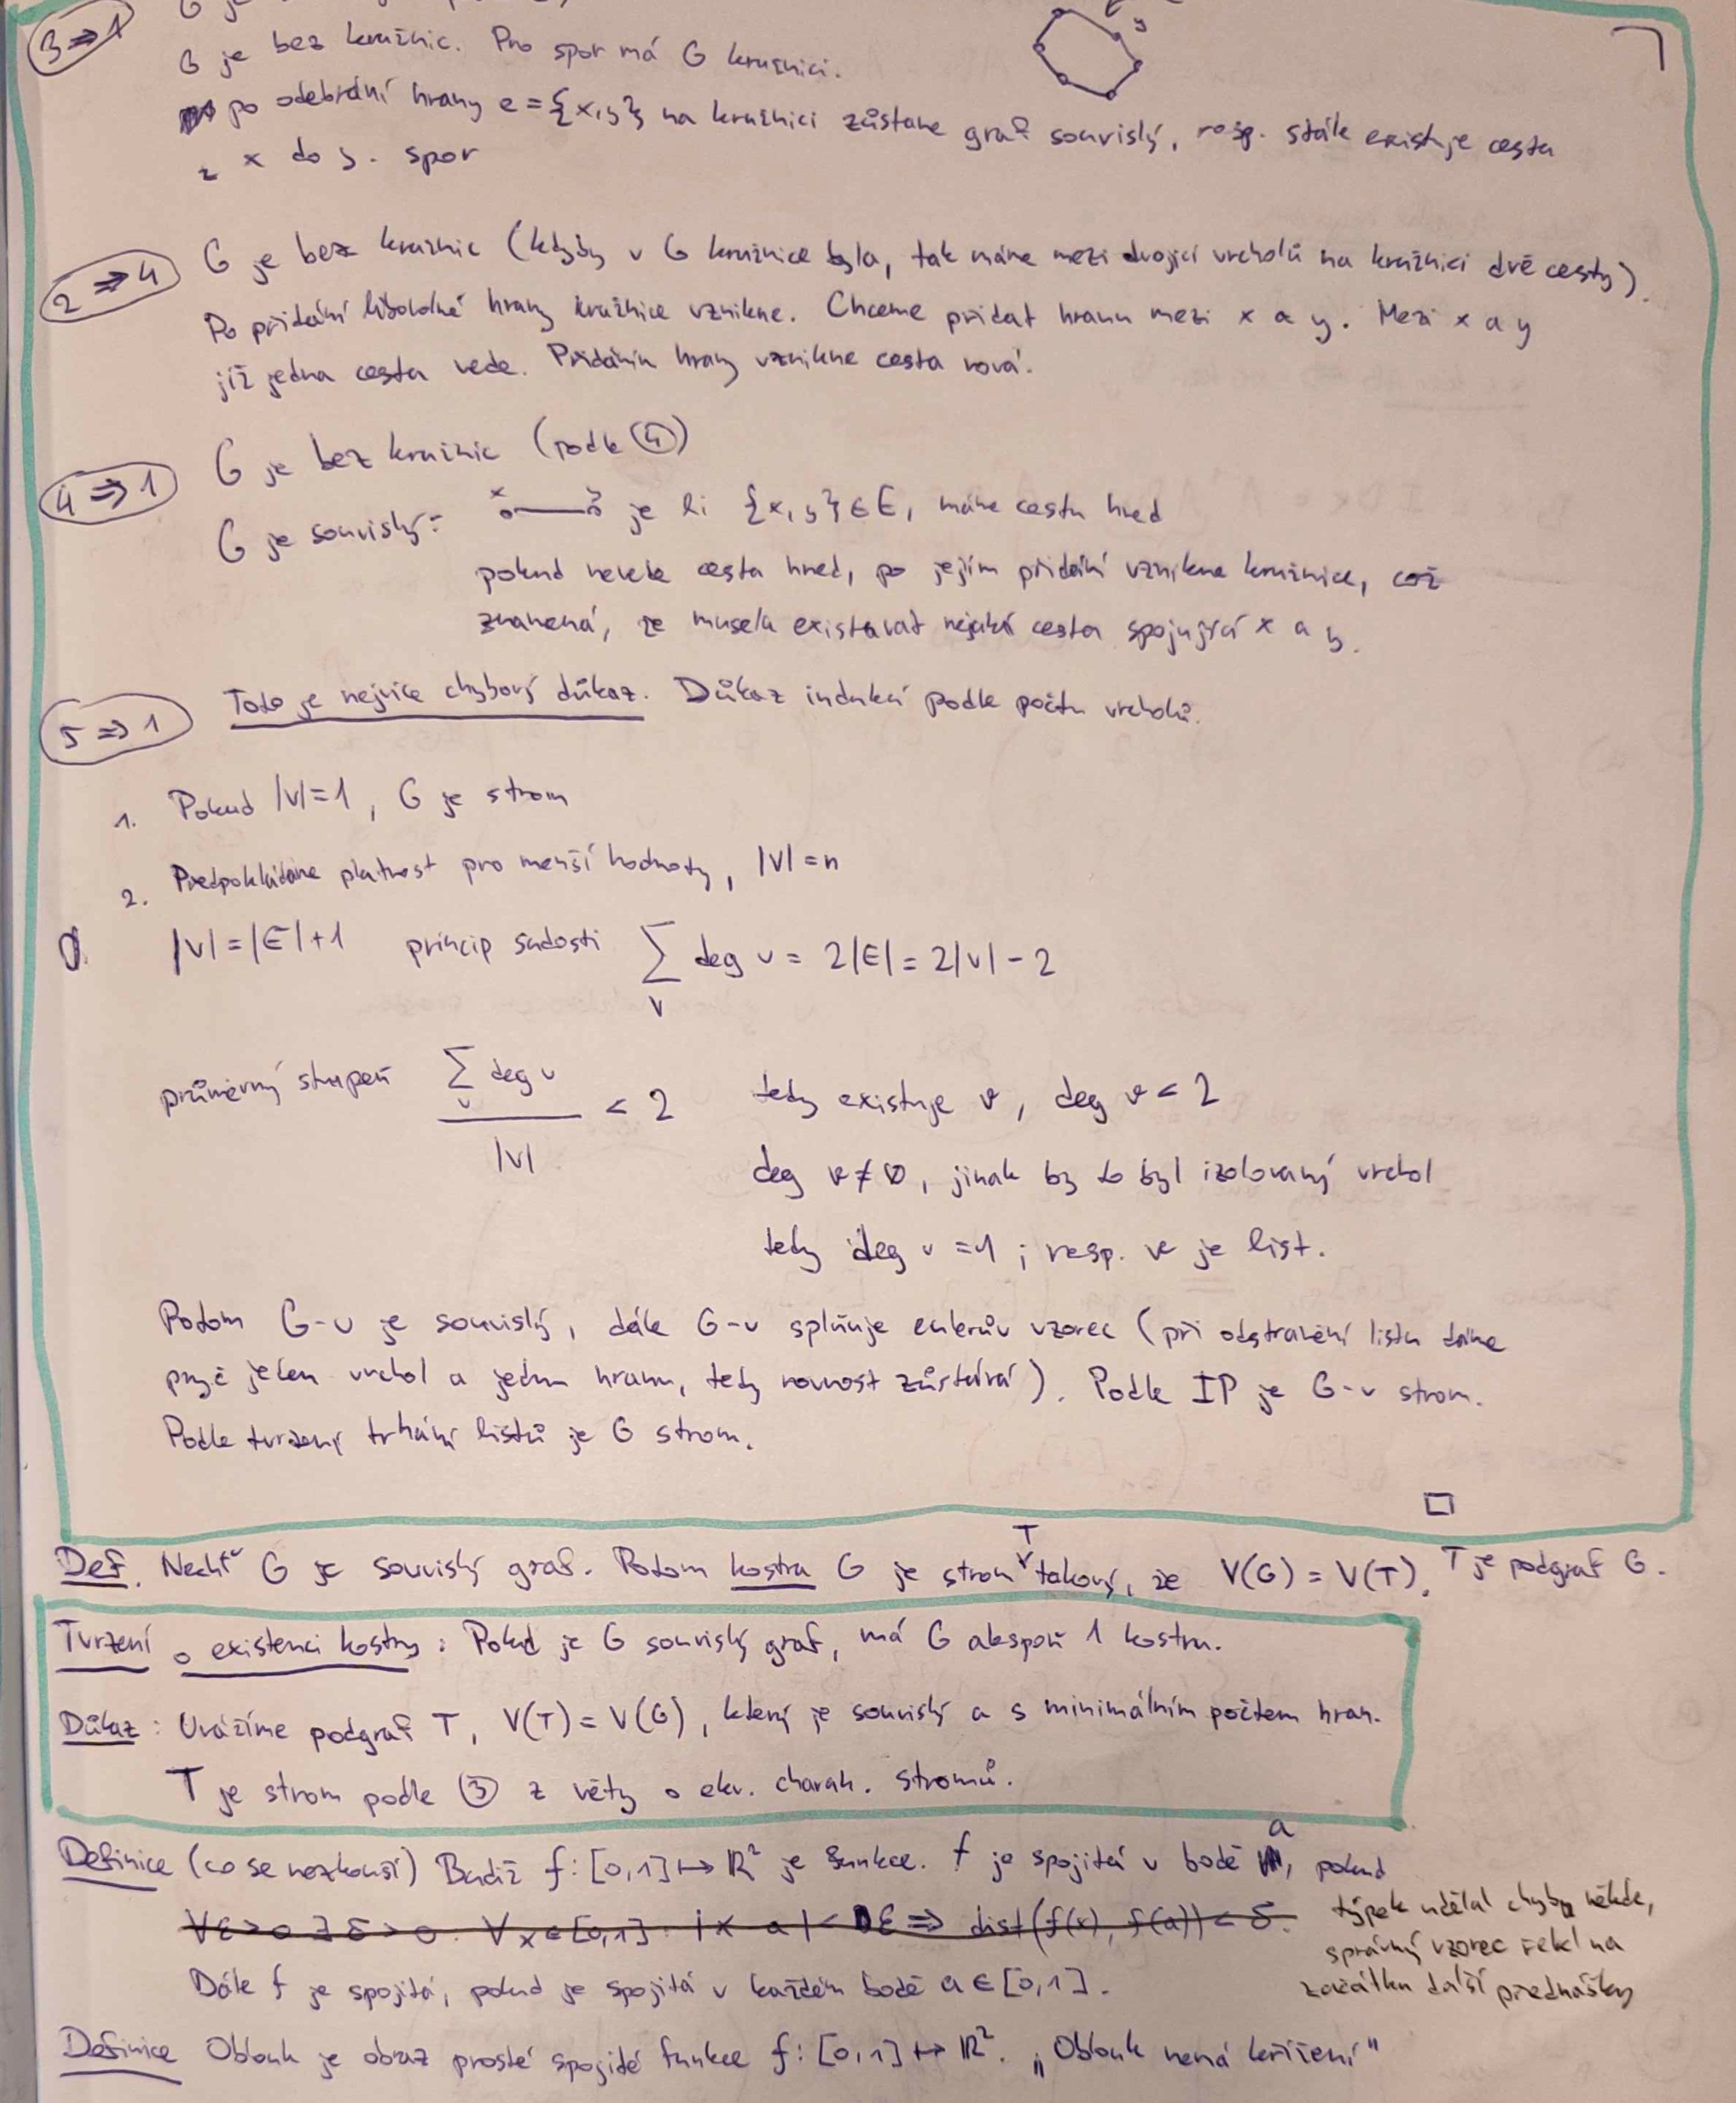 3 ⇒ 1
G je bez kružnic. Pro spor má G kružnici.
y
po odebrání hrany e = {x,y} na kružnici zůstane graf souvislý, resp. stále existuje cesta
z x do y. spor
2 ⇒ 4 G je bez kružnic (kdyby v G kružnice byla, tak máme mezi dvojicí vrcholů na kružnici dvě cesty).
Po přidání libovolné hrany kružnice vznikne. Chceme přidat hranu mezi x a y. Mezi x a y
již jedna cesta vede. Přidáním hrany vznikne cesta nová.
4 ⇒ 1 G je bez kružnic (podle ④)
G je souvislý: x y je li {x,y} ∈ E, máme cestu hned
pokud nevede cesta hned, po jejím přidání vznikne kružnice, což
znamená, že musela existovat nějaká cesta spojující x a y.
5 ⇒ 1 Toto je nejvíce chybový důkaz. Důkaz indukcí podle počtu vrcholů.
1. Pokud |V|=1, G je strom
2. Předpokládáme platnost pro menší hodnoty, |V| = n
|V| = |E|+1 princip sudosti ∑ deg v = 2|E| = 2|V| - 2
V
průměrný stupeň ∑ deg v / |V| < 2 tedy existuje v, deg v < 2
v
deg v ≠ 0, jinak by to byl izolovaný vrchol
tedy deg v = 1 ; resp. v je list.
Potom G-v je souvislý, dále G-v splňuje eulerův vzorec (při odstranění listu dáme
pryč jeden vrchol a jednu hranu, tedy rovnost zůstává). Podle IP je G-v strom.
Podle tvrzení trhání listů je G strom.
□
Def. Nechť G je souvislý graf. Potom kostra G je strom T takový, že V(G) = V(T). T je podgraf G.
Tvrzení o existenci kostry: Pokud je G souvislý graf, má G alespoň 1 kostru.
Důkaz: Uvážíme podgraf T, V(T) = V(G), který je souvislý a s minimálním počtem hran.
T je strom podle ③ z věty o ekv. charak. stromů.
Definice (co se nezkouší) Budiž f: [0,1] ↦ ℝ² je funkce. f je spojitá v bodě a, pokud
∀ε>0 ∃δ>0. ∀x∈[0,1]: |x-a|<ε ⇒ dist(f(x), f(a)) < δ.
týpek udělal chybu někde,
správný vzorec řekl na
začátku další přednášky
Dále f je spojitá, pokud je spojitá v každém bodě a ∈ [0,1].
Definice Oblouk je obraz prosté spojité funkce f: [0,1] ↦ ℝ². „Oblouk nemá křížení"